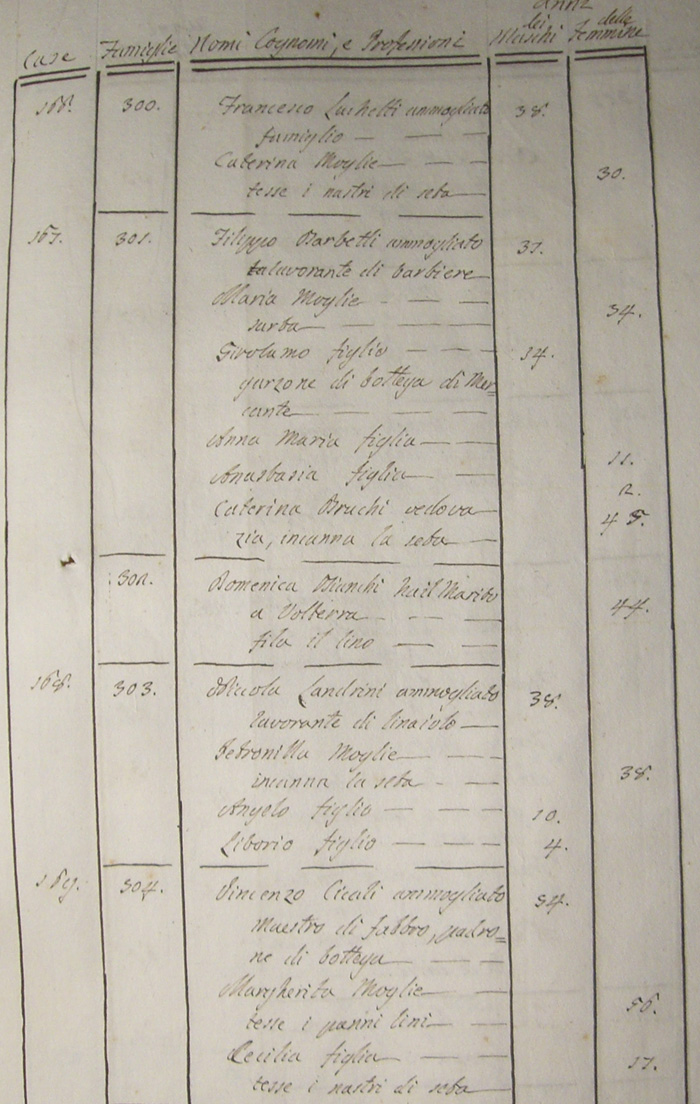 Anni
dei delle
Case Famiglie Nomi Cognomi, e Professioni Maschi Femmine
166. 300. Francesco Luchetti ammogliato 38.
famiglio
Caterina Moglie 30.
tesse i nastri di seta
167. 301. Filippo Barbetti ammogliato 37.
lavorante di barbiere
Maria Moglie 34.
sarta
Girolamo figlio 14.
garzone di bottega di Mer=
cante
Anna Maria figlia 11.
Anastasia figlia 2.
Caterina Bruchi vedova 45.
zia, incanna la seta
302. Domenica Bianchi ha il Marito 44.
a Volterra
fila il lino
168. 303. Niccola Landrini ammogliato 38.
lavorante di linaiolo
Petronilla Moglie 38.
incanna la seta
Angelo figlio 10.
Liborio figlio 4.
169. 304. Vincenzo Cicali ammogliato 54.
Maestro di fabbro, padro=
ne di bottega
Margherita Moglie 56.
tesse i panni lini
Cecilia figlia 17.
tesse i nastri di seta